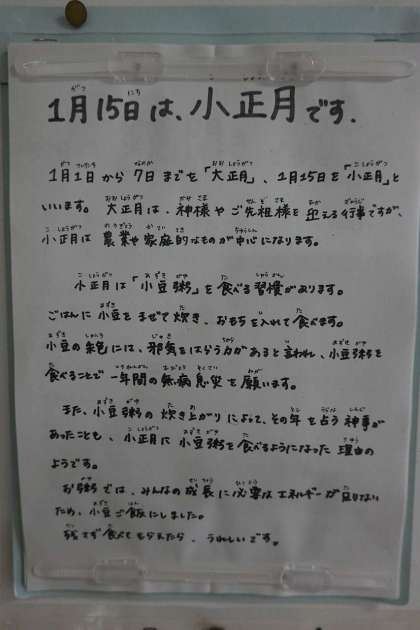 1月15日は、小正月です.
1月1日から7日までを「大正月」、1月15日を「小正月」と
いいます。大正月は、神様やご先祖様を迎える行事ですが、
小正月は農業や家庭的なものが中心になります。
小正月は「小豆粥」を食べる習慣があります。
ごはんに小豆をまぜて炊き、おもちを入れて食べます。
小豆の朱色には、邪気をはらう力があると言われ、小豆粥を
食べることで一年間の無病息災を願います。
また、小豆粥の炊き上がりによって、その年を占う神事が
あったことも、小正月に小豆粥を食べるようになった理由の
ようです。
お粥では、みんなの成長に必要なエネルギーが足りない
ため、小豆ご飯にしました。
残さず食べてもらえたら、うれしいです。